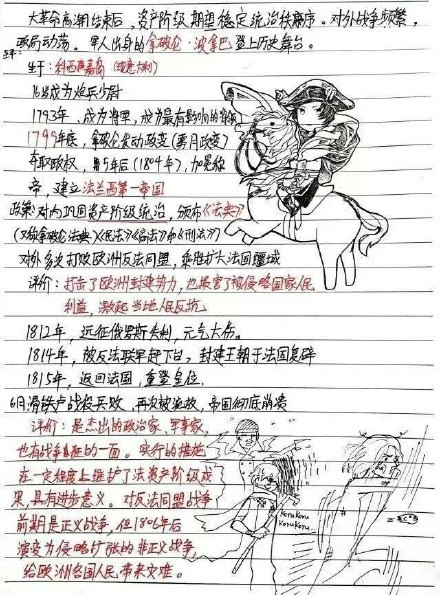 大革命高潮结束后，资产阶级期望稳定统治秩序。对外战争频繁，
政局动荡。军人出身的拿破仑·波拿巴登上历史舞台。
生于：科西嘉岛（意大利）
16岁成为炮兵少尉
1793年，成为将军，成为最有影响的将领
1799年底，拿破仑发动政变（雾月政变）
夺取政权，用5年后（1804年），加冕称
帝，建立法兰西第一帝国
政策：对内巩固资产阶级统治，颁布《法典》
（又称拿破仑法典）《民法》《商法》和《刑法》
对外多次打败欧洲反法同盟，乘胜扩大法国疆域
评价：打击了欧洲封建势力，也损害了被侵略国家人民
利益，激起当地人民反抗
1812年，远征俄罗斯失利，元气大伤。
1814年，被反法联军赶下台，封建王朝于法国复辟
1815年，返回法国，重登皇位，
6月滑铁卢战役兵败，再次被流放，帝国彻底崩溃
评价：是杰出的政治家、军事家，
也有战争的一面。实行的措施
在一定程度上维护了法资产阶级成
果，具有进步意义。对反法同盟战争
前期是正义战争，但1806年后
演变为侵略扩张的非正义战争，
给欧洲各国人民带来灾难。
KoruKoru
KoruKoru...